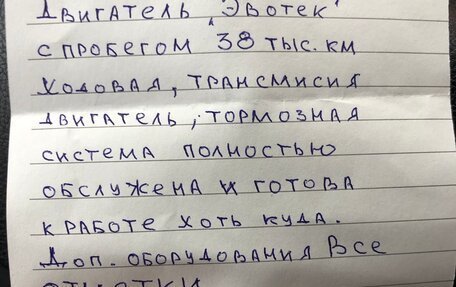 Двигатель „Эвотек"
с пробегом 38 тыс. км
Ходовая, трансмисия
двигатель, тормозная
система полностью
обслужена и готова
к работе хоть куда.
Доп. оборудования Все